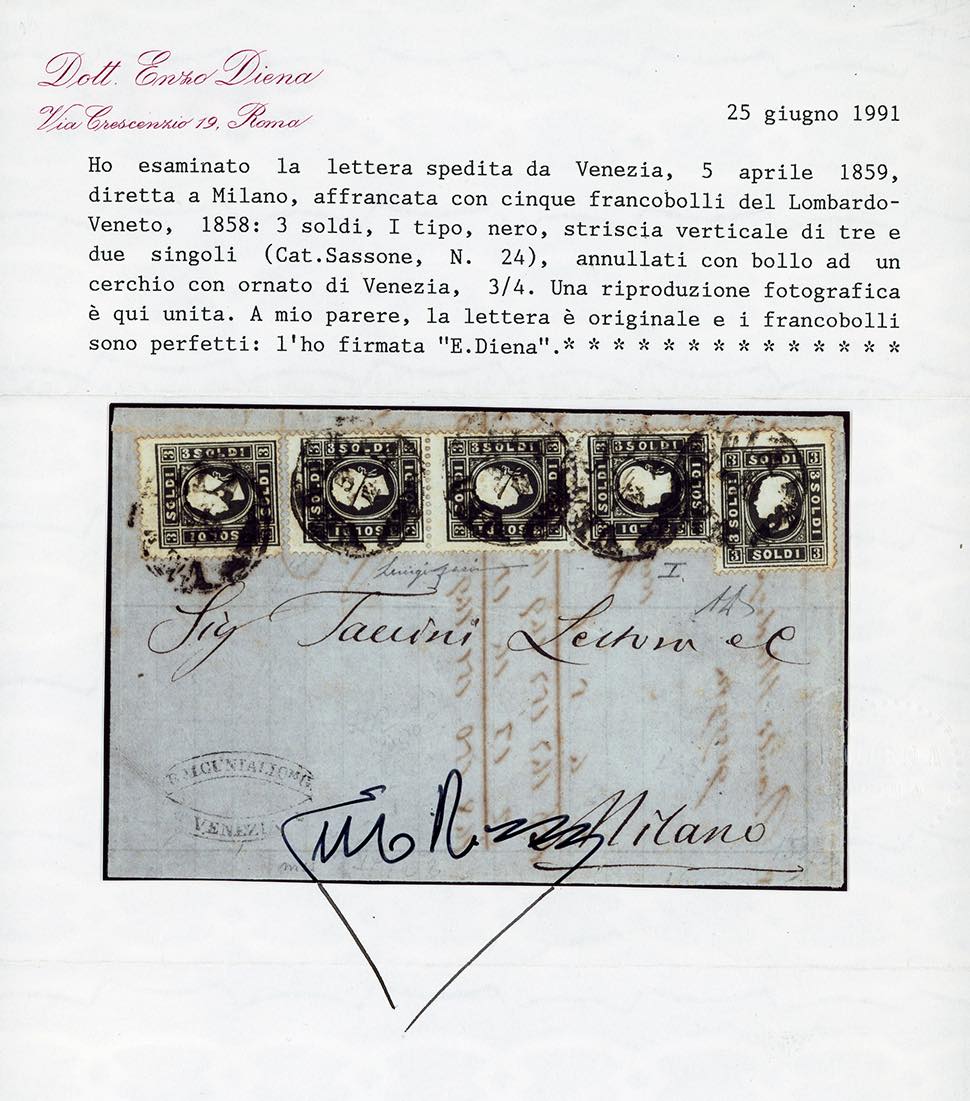 Dott. Enzo Diena
Via Crescenzio 19, Roma
25 giugno 1991
Ho esaminato la lettera spedita da Venezia, 5 aprile 1859,
diretta a Milano, affrancata con cinque francobolli del Lombardo-
Veneto, 1858: 3 soldi, I tipo, nero, striscia verticale di tre e
due singoli (Cat.Sassone, N. 24), annullati con bollo ad un
cerchio con ornato di Venezia, 3/4. Una riproduzione fotografica
è qui unita. A mio parere, la lettera è originale e i francobolli
sono perfetti: l'ho firmata "E.Diena".* * * * * * * * * * * * * *
3 SOLDI 3 SOLDI 3 SOLDI 3
3 SOLDI 3 SOLDI 3 SOLDI 3
3 SOLDI 3 SOLDI 3 SOLDI 3
3 SOLDI 3 SOLDI 3 SOLDI 3
3 SOLDI 3 SOLDI 3 SOLDI 3
I.
Sig
VENEZI
Milano